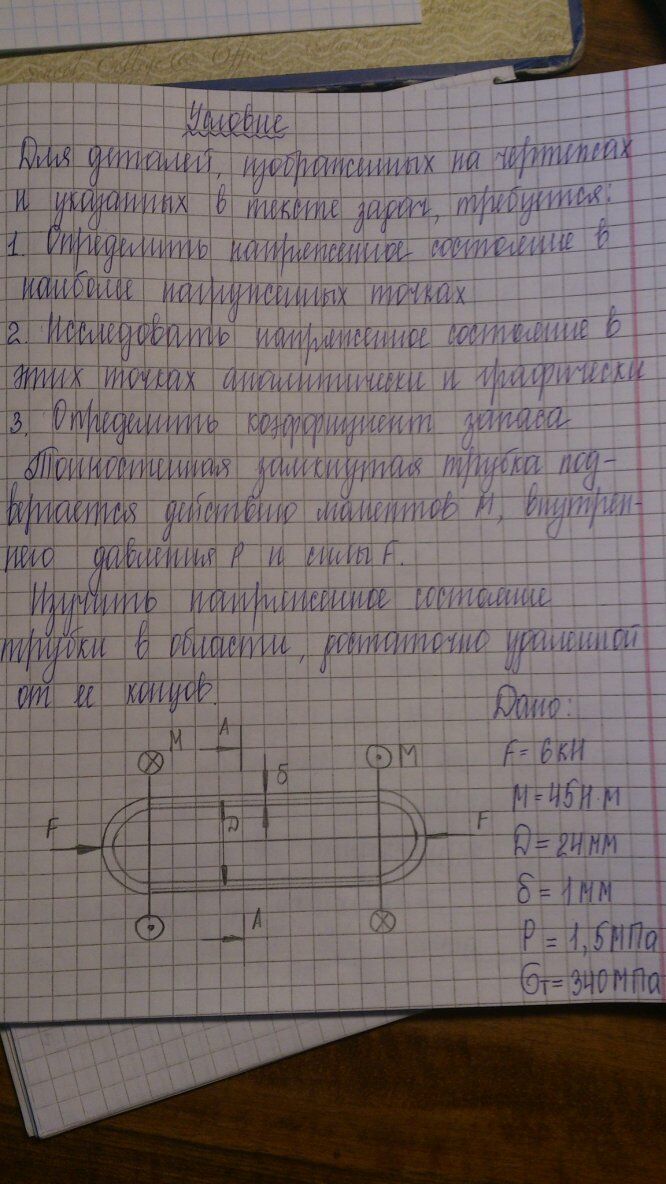 Условие
Для деталей, изображенных на чертежах
и указанных в тексте задач, требуется:
1. Определить напряженное состояние в
наиболее нагруженных точках
2. Исследовать напряженное состояние в
этих точках аналитически и графически
3. Определить коэффициент запаса
Тонкостенная замкнутая трубка под-
вергается действию моментов М, внутрен-
него давления Р и силы F.
Изучить напряженное состояние
трубки в области, достаточно удаленной
от ее концов.
Дано:
F = 6кН
М = 45Н·м
Д = 24мм
δ = 1мм
Р = 1,5МПа
σт = 340МПа
М
А
М
δ
F
Д
F
А